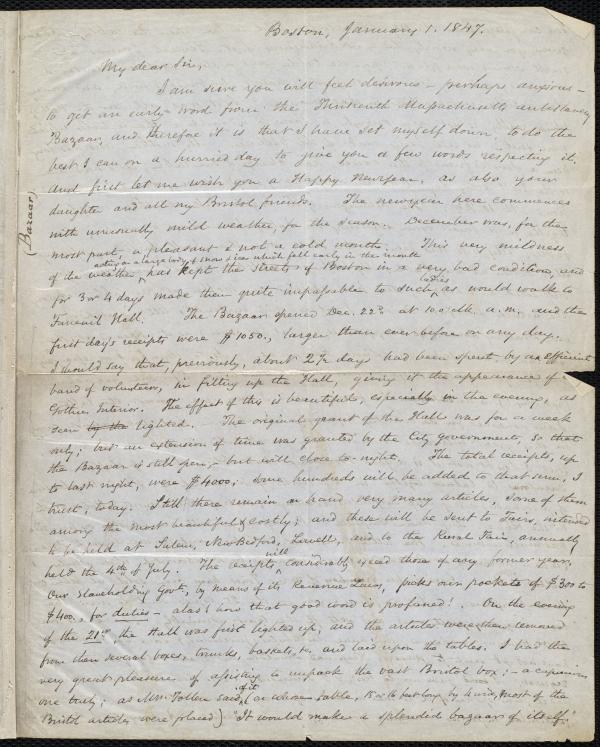 Boston, January 1. 1847.
My dear Sir,
I am sure you will feel desirous - perhaps anxious -
to get an early word from the Thirteenth Massachusetts antislavery
Bazaar, and therefore it is that I have set myself down, to do the
best I can on a hurried day to give you a few words respecting it.
And first let me wish you a Happy Newyear, as also your
daughter and all my Bristol friends. The newyear here commences
with unusually mild weather, for the season. December was, for the
most part, a pleasant & not a cold month. This very mildness
acting on a large body of snow & ice which fell early in the month
of the weather, has kept the streets of Boston in a very bad condition, and
for 3 or 4 days made them quite impassable to such ladies as would walk to
Faneuil Hall. The Bazaar opened Dec. 22d at 10 o'clk. a.m. and the
first day's receipts were $1050., larger than ever before on any day.
I should say that, previously, about 2½ days had been spent by an efficient
band of volunteers, in fitting up the Hall, giving it the appearance of a
Gothic Interior. The effect of this is beautiful, especially in the evening, as
seen by the lighted. The original grant of the Hall was for a week
only; but an extension of time was granted by the City government, so that
the Bazaar is still open, - but will close to-night. The total receipts, up
to last night, were $4000; some hundreds will be added to that sum, I
trust, today. Still there remain on hand very many articles, some of them
among the most beautiful & costly; and these will be sent to Fairs, intended
to be held at Salem, New Bedford, Lowell, and to the Rural Fair, annually
held the 4th of July. The receipts will considerably exceed those of any former year.
Our slaveholding Govt., by means of its Revenue Laws, picks our pockets of $300 to
$400., for duties - alas! how that good word is profaned! On the evening
of the 21st the Hall was first lighted up, and the articles were then removed
from their several boxes, trunks, baskets, &c. and laid upon the tables. I had the
very great pleasure of assisting to unpack the vast Bristol box; - a capacious
one truly; as Mrs. Follen said of it (on whose table, 15 or 16 feet long by 4 wide, most of the
Bristol articles were placed) "It would make a splendid bazaar of itself."
(Bazaar)